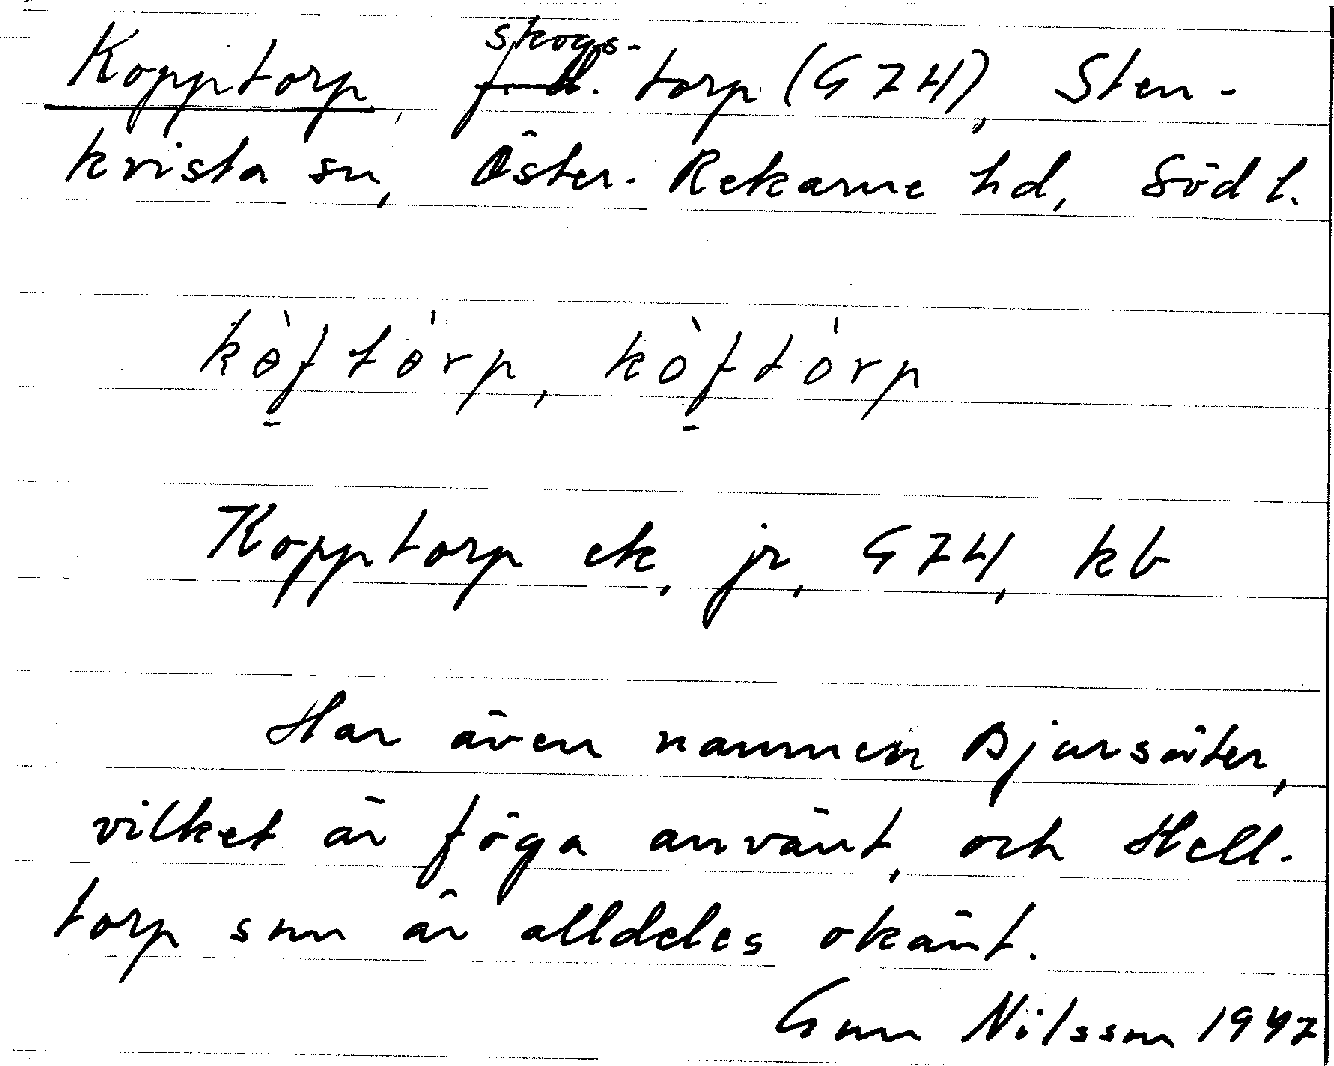 Kopptorp, skogs-
torp (G 74), Sten-
kvista sn, Öster-Rekarne hd, Södl.
kòftórp, kòftórp
Kopptorp ek, jr, G 74, kb
Har även namnen Bjursäter,
vilket är föga använt, och Hell-
torp som är alldeles okänt.
Gun Nilsson 1947